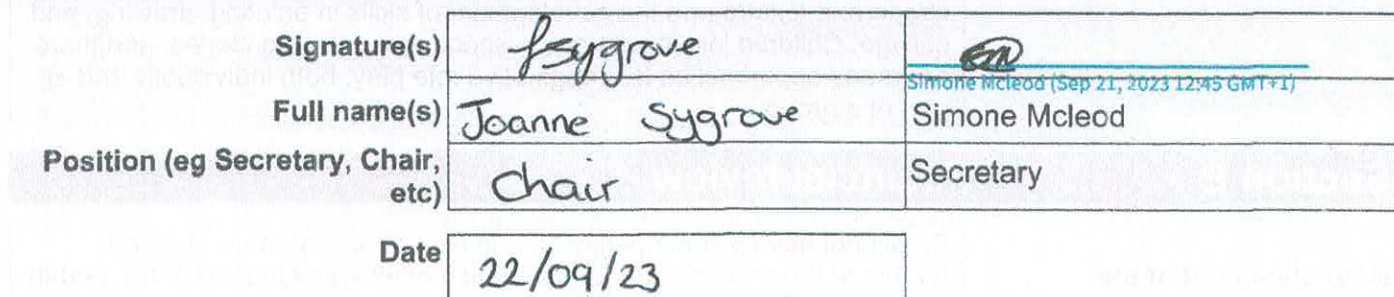 Signature(s) Jsygrove
Simone Mcleod (Sep 21, 2023 12:45 GMT+1)
Full name(s) Joanne Sygrove Simone Mcleod
Position (eg Secretary, Chair, etc) Chair Secretary
Date 22/09/23